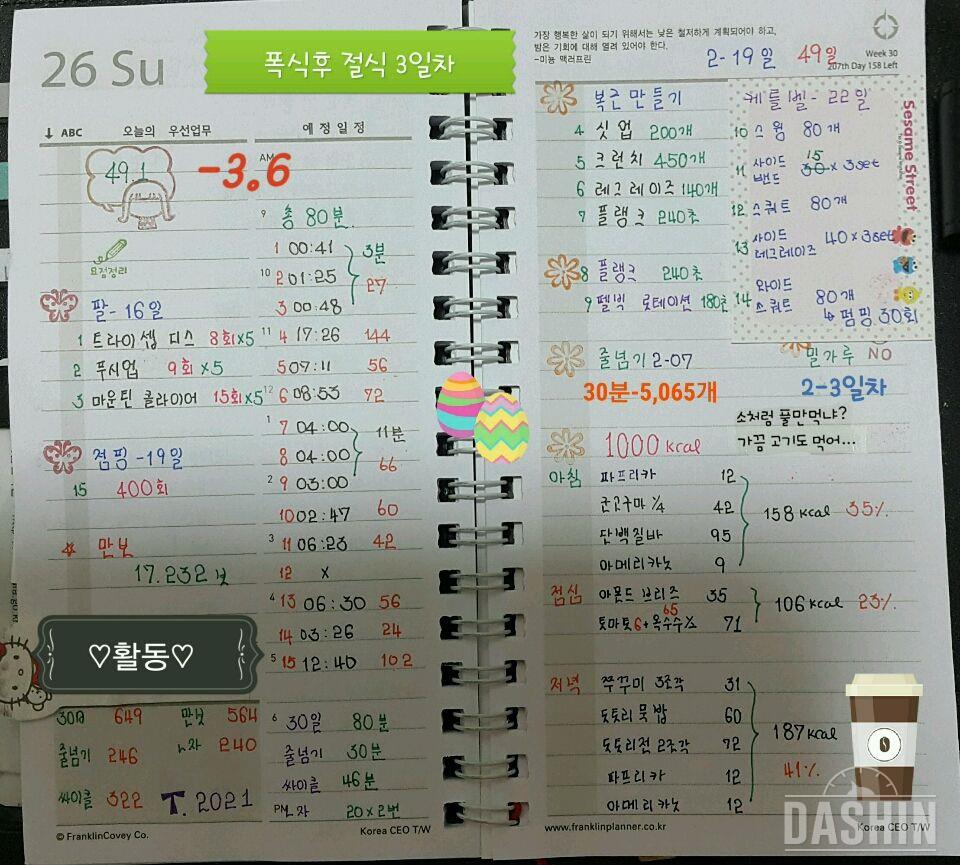 26 Su
폭식후 절식 3일차
↓ ABC 오늘의 우선업무
예정일정
49.1
-3.6
AM
9 총 80분
1 00:41
10 2 01:25
3 00:48
3분
27
요점정리
팔-16일
1 트라이셉 딥스 8회x5
2 푸시업 9회x5
3 마운틴 클라이머 15회x5
11 4 17:26 144
5 07:11 56
12 6 08:53 72
1 7 04:00
8 04:00
2 9 03:00
11분
66
10 02:47 60
3 11 06:23 42
12 x
4 13 06:30 56
14 03:26 24
5 15 12:40 102
점핑-19일
15 400회
만보
17.232보
♡활동♡
30일 649 만보 564
줄넘기 246 240
싸이클 322 T. 2021
6 30일 80분
줄넘기 30분
싸이클 46분
PM 20x2번
© FranklinCovey Co.
Korea CEO T/W
가장 행복한 삶이 되기 위해서는 낮은 철저하게 계획되어야 하고,
밤은 기회에 대해 열려 있어야 한다.
-미뇽 맥러프린
2-19일 49일
Week 30
207th Day 158 Left
복근만들기
4 싯업 200개
5 크런치 450개
6 레그레이즈 140개
7 플랭크 240초
8 플랭크 240초
9 펠빅 로테이션 180초
케틀벨-22일
10 스윙 80개
11 사이드 밴드 15 30x3set
12 스쿼트 80개
13 사이드 레그레이즈 40x3set
14 와이드 스쿼트 80개
↳펌핑 30회
Sesame Street
줄넘기 2-07
30분-5,065개
밀가루 NO
2-3일차
소처럼 풀만먹냐?
가끔 고기도 먹어...
1000 kcal
아침 파프리카 12
군고구마 ¼ 42
단백질바 95
아메리카노 9
158 kcal 35%
점심 아몬드 브리즈 35
65
토마토6+옥수수½ 71
106 kcal 23%
저녁 쭈꾸미 3조각 31
도토리묵밥 60
도토리전 2조각 72
파프리카 12
아메리카노 12
187 kcal
41%
DASHIN
www.franklinplanner.co.kr
Korea CEO T/W